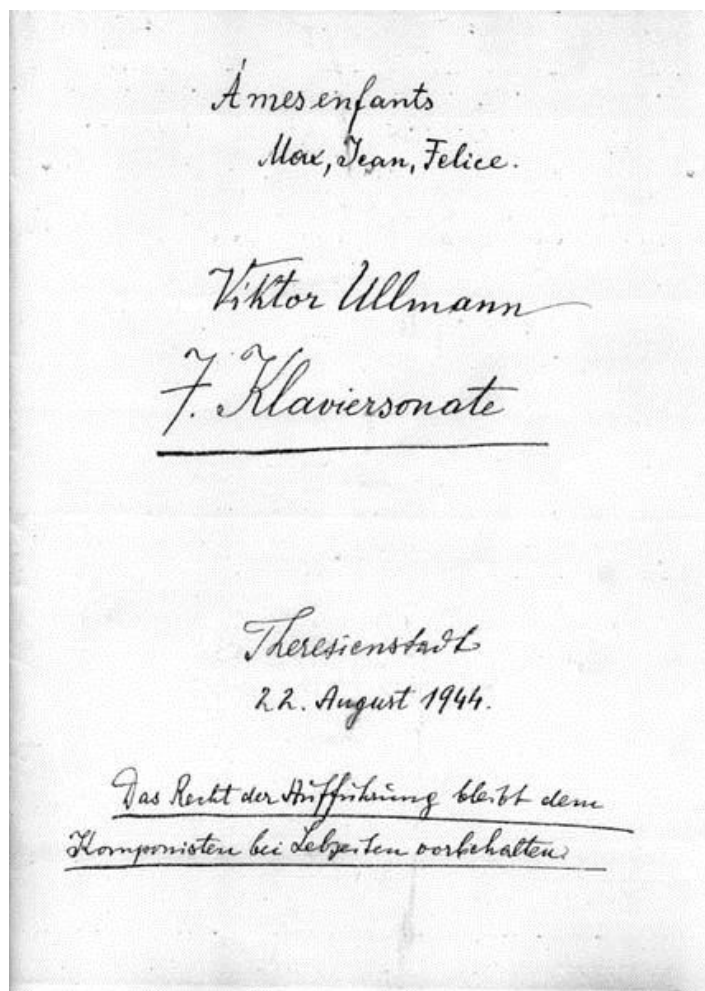 Á mes enfants
Max, Jean, Felice.
Viktor Ullmann
7. Klaviersonate
Theresienstadt
22. August 1944.
Das Recht der Aufführung bleibt dem
Komponisten bei Lebzeiten vorbehalten.